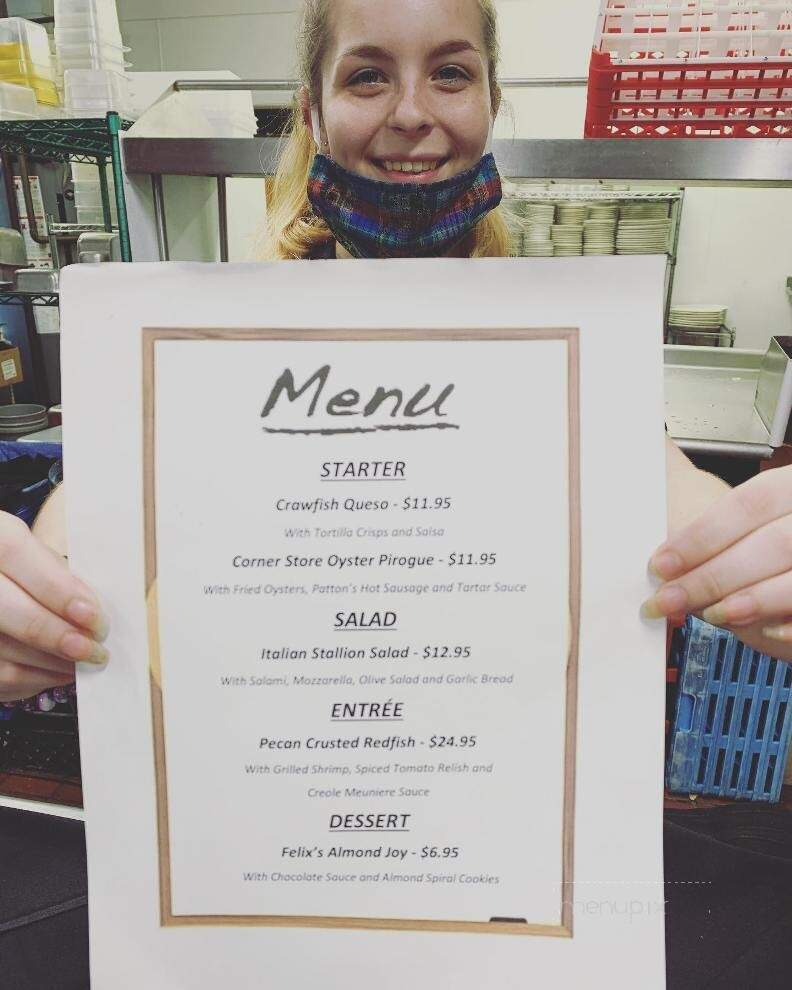 Menu
STARTER
Crawfish Queso - $11.95
With Tortilla Crisps and Salsa
Corner Store Oyster Pirogue - $11.95
With Fried Oysters, Patton's Hot Sausage and Tartar Sauce
SALAD
Italian Stallion Salad - $12.95
With Salami, Mozzarella, Olive Salad and Garlic Bread
ENTRÉE
Pecan Crusted Redfish - $24.95
With Grilled Shrimp, Spiced Tomato Relish and
Creole Meuniere Sauce
DESSERT
Felix's Almond Joy - $6.95
With Chocolate Sauce and Almond Spiral Cookies
menupix